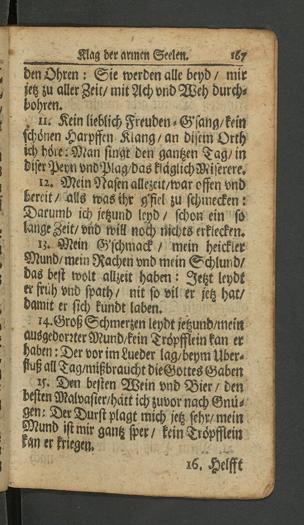 Klag der armen Seelen. 167
den Ohren: Sie werden alle beyd / mir
jetz zu aller Zeit / mit Ach und Weh durch-
bohren.
11. Kein lieblich Freuden-G'sang / kein
schönen Harpffen Klang / an disem Orth
ich hört: Man singt den gantzen Tag / in
diser Peyn vnd Plag / das kläglich Miserere.
12. Mein Nasen allezeit / war offen vnd
bereit / alls was ihr g'fiel zu schmecken:
Darumb ich jetzund leyd / schon ein so
lange Zeit / vnd will noch nichts erklecken.
13. Mein G'schmack / mein heickler
Mund / mein Rachen vnd mein Schlund /
das best wolt allzeit haben: Jetzt leydt
er früh vnd spath / nit so vil er jetz hat /
damit er sich kundt laben.
14. Groß Schmerzen leydt jetzund / mein
ausgedorzter Mund / kein Tröpfflein kan er
haben: Der vor im Lueder lag / beym Uber-
fluß all Tag / mißbraucht die Gottes Gaben
15. Den besten Wein vnd Bier / den
besten Malvasier / hätt ich zuvor nach Gnü-
gen: Der Durst plagt mich jetz sehr / mein
Mund ist mir gantz sper / kein Tröpfflein
kan er kriegen.
16. Helfft